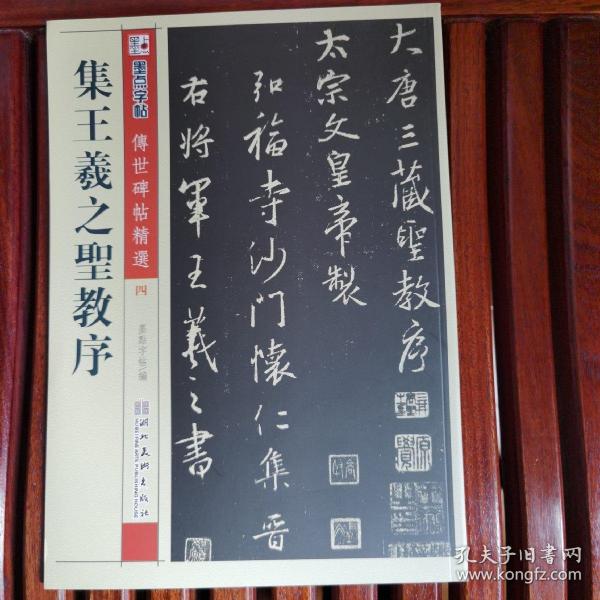 集王羲之聖教序
墨点
墨点字帖
傳世碑帖精選
四
墨點字帖/編
湖北美術出版社
HUBEI FINE ARTS PUBLISHING HOUSE
大唐三藏聖教序
太宗文皇帝製
弘福寺沙門懷仁集晉
右將軍王羲之書
孔夫子旧书网
www.kongfz.com